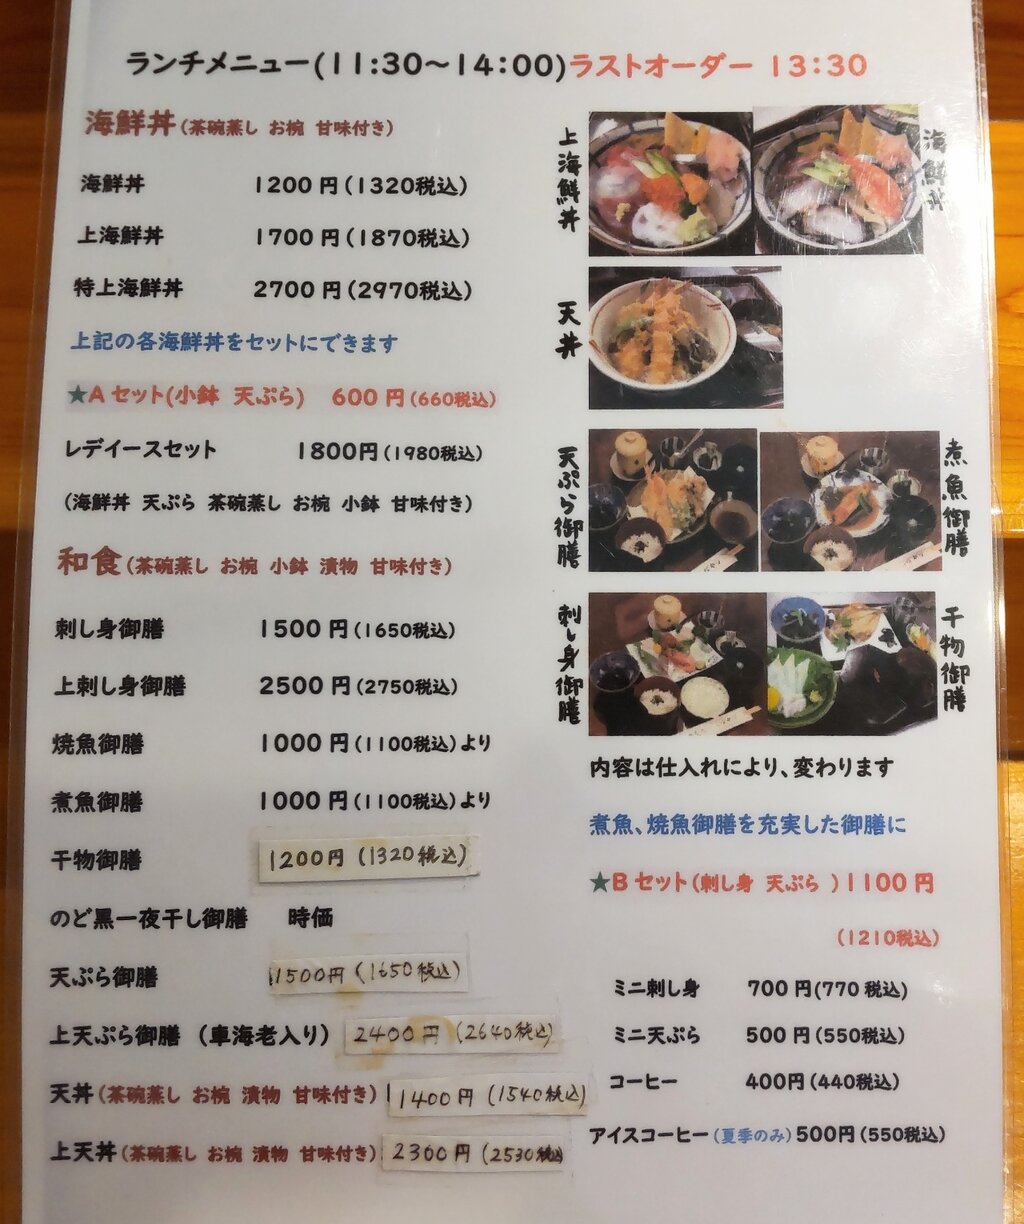 ランチメニュー(11:30〜14:00)ラストオーダー 13:30
海鮮丼(茶碗蒸し お椀 甘味付き)
海鮮丼 1200円(1320税込)
上海鮮丼 1700円(1870税込)
特上海鮮丼 2700円(2970税込)
上記の各海鮮丼をセットにできます
★Aセット(小鉢 天ぷら) 600円(660税込)
レデイースセット 1800円(1980税込)
(海鮮丼 天ぷら 茶碗蒸し お椀 小鉢 甘味付き)
和食(茶碗蒸し お椀 小鉢 漬物 甘味付き)
刺し身御膳 1500円(1650税込)
上刺し身御膳 2500円(2750税込)
焼魚御膳 1000円(1100税込)より
煮魚御膳 1000円(1100税込)より
干物御膳 1200円(1320税込)
のど黒一夜干し御膳 時価
天ぷら御膳 1500円(1650税込)
上天ぷら御膳 (車海老入り) 2400円(2640税込)
天丼(茶碗蒸し お椀 漬物 甘味付き) 1400円(1540税込)
上天丼(茶碗蒸し お椀 漬物 甘味付き) 2300円(2530税込)
上海鮮丼
海鮮丼
天丼
天ぷら御膳
煮魚御膳
刺し身御膳
干物御膳
内容は仕入れにより、変わります
煮魚、焼魚御膳を充実した御膳に
★Bセット(刺し身 天ぷら )1100円
(1210税込)
ミニ刺し身 700円(770税込)
ミニ天ぷら 500円(550税込)
コーヒー 400円(440税込)
アイスコーヒー(夏季のみ)500円(550税込)